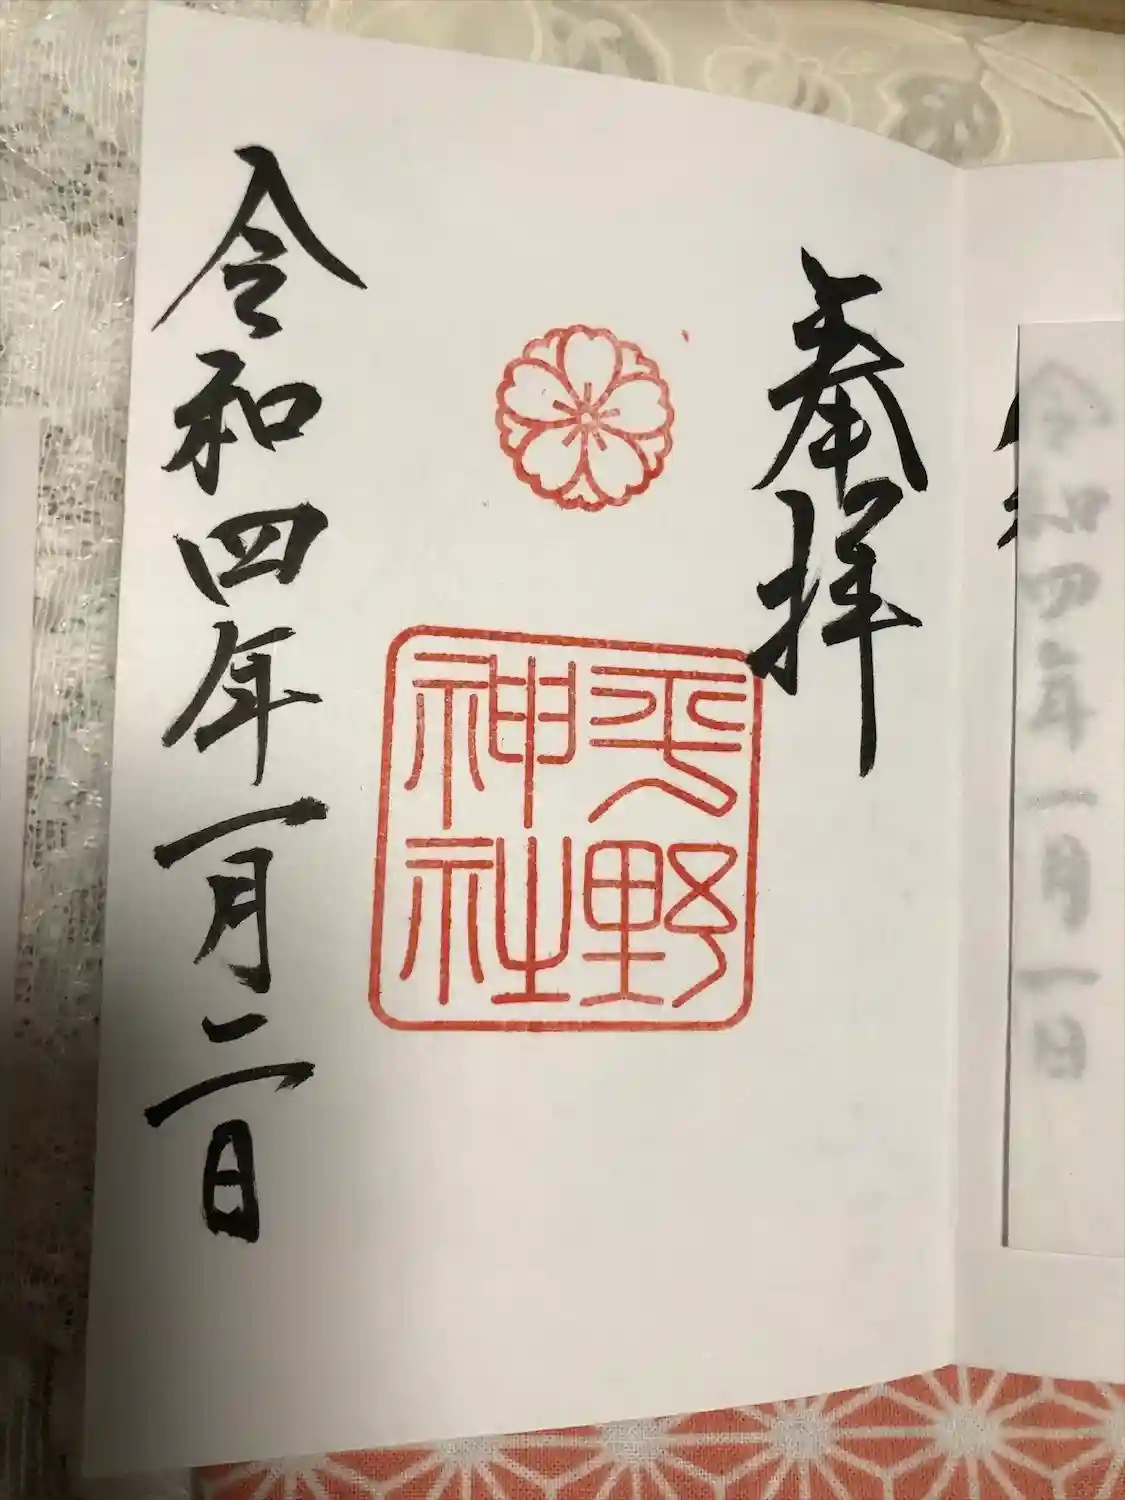 奉拝
平野
神社
令和四年一月二日
令和四年一月一日